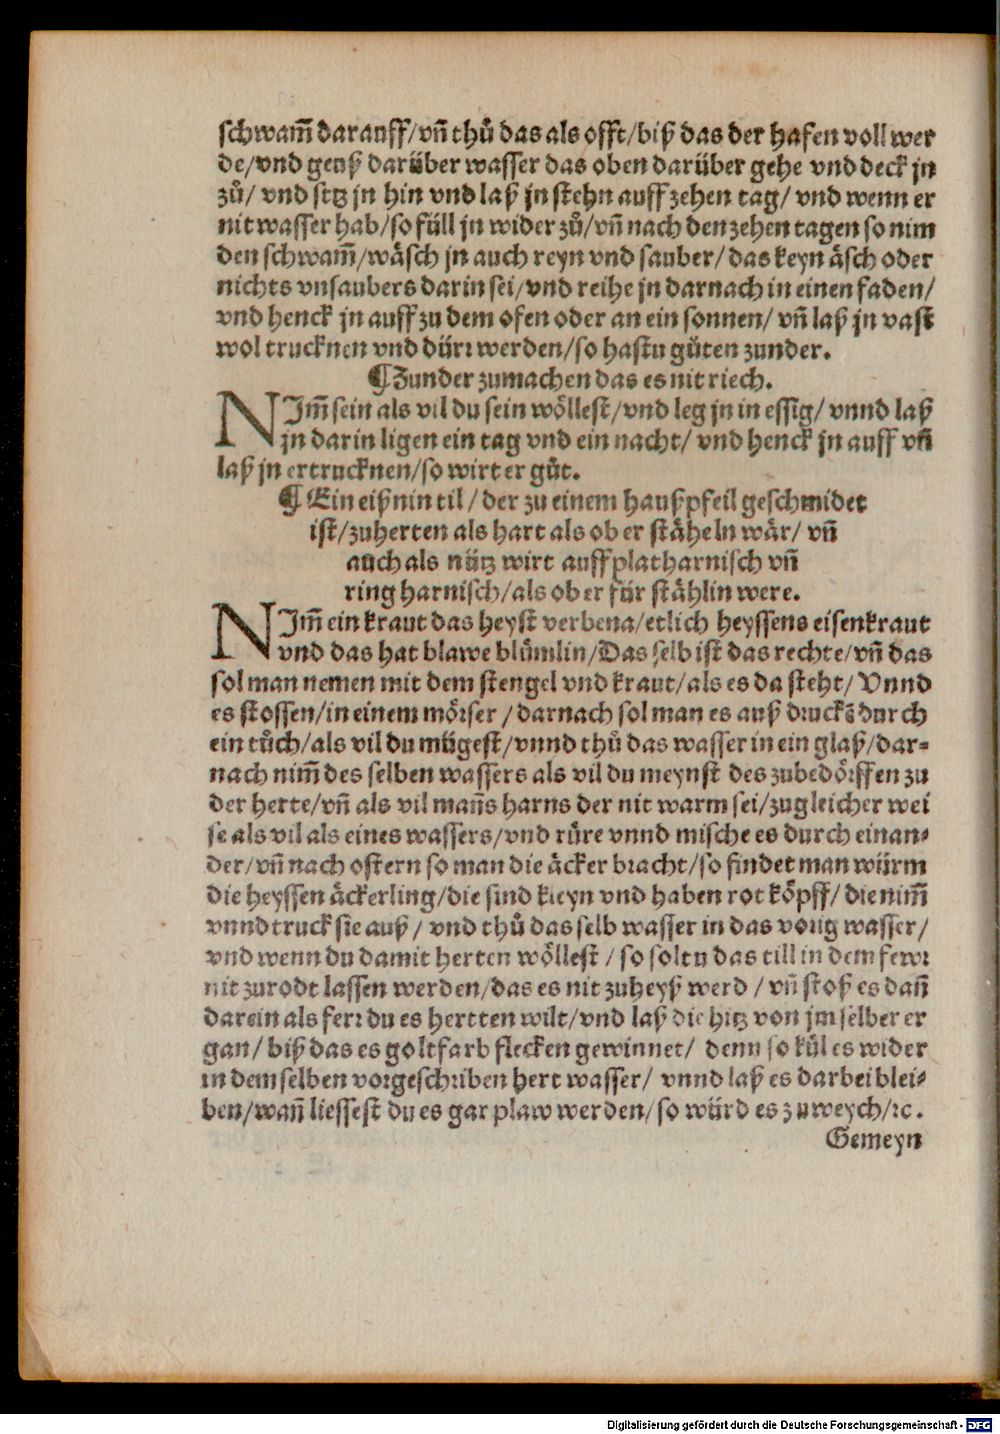 schwam̃ darauff/ vñ thů das als offt/ biß das der hafen voll wer
de/ vnd geuß darüber wasser das oben darüber gehe vnd deck jn
zů/ vnd setz jn hin vnd laß jn stehn auff zehen tag/ vnd wenn er
nit wasser hab/ so füll jn wider zů/ vñ nach den zehen tagen so nim
den schwam̃/ wäsch jn auch reyn vnd sauber/ das keyn äsch oder
nichts vnsaubers darin sei/ vnd reihe jn darnach in einen faden/
vnd henck jn auff zu dem ofen oder an ein sonnen/ vñ laß jn vast
wol trucknen vnd dürr werden/ so hastu gůten zunder.
¶ Zunder zumachen das es nit riech.
NIm̃ sein als vil du sein wöllest/ vnd leg jn in essig/ vnnd laß
jn darin ligen ein tag vnd ein nacht/ vnd henck jn auff vñ
laß jn ertrucknen/ so wirt er gůt.
¶ Ein eißnin til/ der zu einem haußpfeil geschmidet
ist/ zuherten als hart als ob er stäheln wär/ vñ
auch als nütz wirt auff platharnisch vñ
ring harnisch/ als ob er für stählin were.
NIm̃ ein kraut das heyst verbena/ etlich heyssens eisenkraut
vnd das hat blawe blůmlin/ Das selb ist das rechte/ vñ das
sol man nemen mit dem stengel vnd kraut/ als es da steht/ Vnnd
es stossen/ in einem mörser/ darnach sol man es auß druckē durch
ein tůch/ als vil du mügest/ vnnd thů das wasser in ein glaß/ dar-
nach nim̃ des selben wassers als vil du meynst des zubedörffen zu
der herte/ vñ als vil mañs harns der nit warm sei/ zu gleicher wei
se als vil als eines wassers/ vnd rüre vnnd mische es durch einan-
der/ vñ nach ostern so man die äcker bracht/ so findet man würm
die heyssen äckerling/ die sind kleyn vnd haben rot köpff/ die nim̃
vnnd truck sie auß/ vnd thů das selb wasser in das vorig wasser/
vnd wenn du damit herten wöllest/ so soltu das till in dem fewr
nit zurodt lassen werden/ das es nit zuheyß werd/ vñ stoß es dañ
darein als ferr du es hertten wilt/ vnd laß die hitz von jm selber er
gan/ biß das es goltfarb flecken gewinnet/ denn so kül es wider
in dem selben vorgeschriben hert wasser/ vnnd laß es darbei blei-
ben/ wañ liessest du es gar plaw werden/ so würd es zu weych/ ꝛc.
Gemeyn
Digitalisierung gefördert durch die Deutsche Forschungsgemeinschaft - DFG